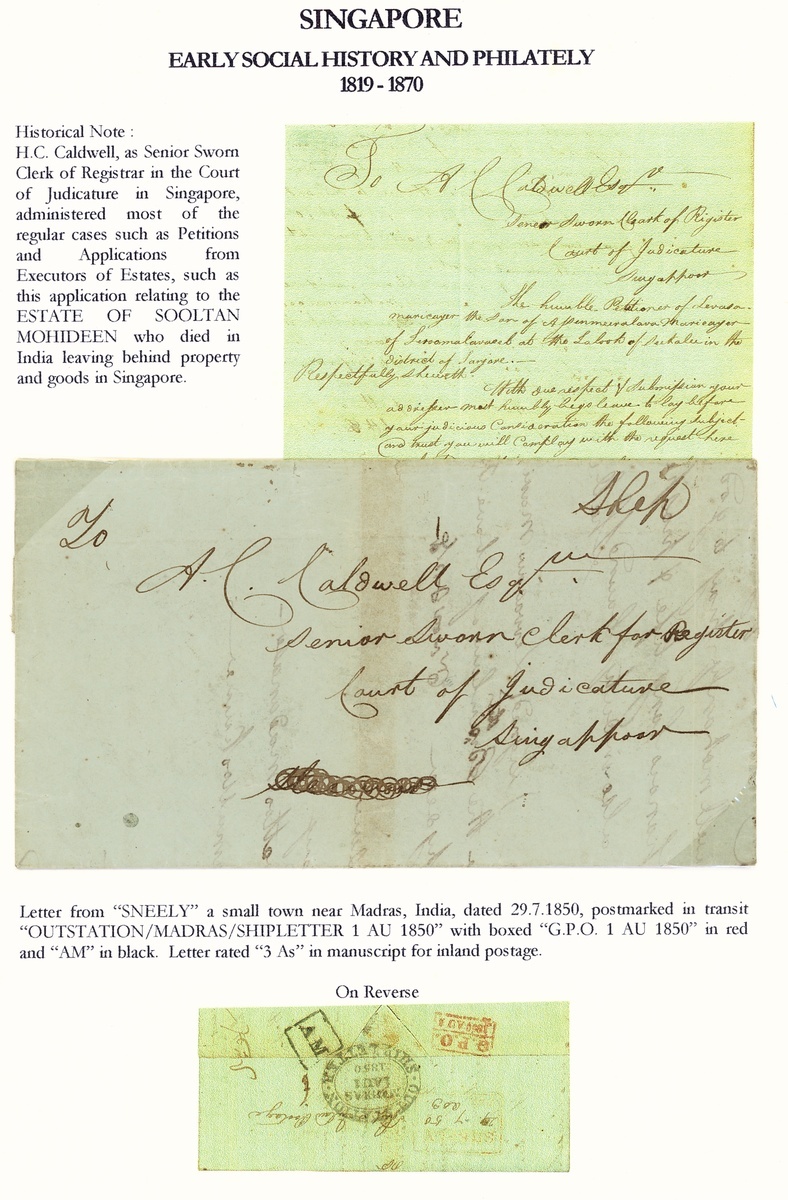 SINGAPORE
EARLY SOCIAL HISTORY AND PHILATELY
1819 - 1870
Historical Note :
H.C. Caldwell, as Senior Sworn
Clerk of Registrar in the Court
of Judicature in Singapore,
administered most of the
regular cases such as Petitions
and Applications from
Executors of Estates, such as
this application relating to the
ESTATE OF SOOLTAN
MOHIDEEN who died in
India leaving behind property
and goods in Singapore.
To A C Caldwell Esqr
Senior Sworn Clark of Rigister
Court of Judicature
Singappoor
The humble Petitioner of
maricayer the Son of Maricayer
of at the of in the
district of Tanjore.
Respectfully Sheweth
With due respect & Submission your
addresser most humbly begs leave to lay before
your judicious Consideration the following Subject
and trust you will Comploy with the request here
Ship
To
A. C. Caldwell Esqr
Senior Sworn Clerk for Register
Court of Judicature
Singappoor
Letter from “SNEELY” a small town near Madras, India, dated 29.7.1850, postmarked in transit
“OUTSTATION/MADRAS/SHIPLETTER 1 AU 1850” with boxed “G.P.O. 1 AU 1850” in red
and “AM” in black. Letter rated “3 As” in manuscript for inland postage.
On Reverse
AM
G.P.O.
1 AU
1850
SHIPLETTER
MADRAS
1 AU
1850